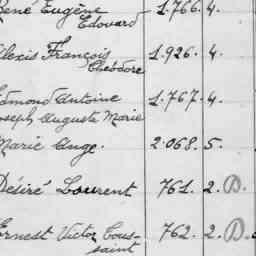 René Eugène 1.766. 4.
Edouard
Alexis François 1.926. 4.
Théodore
Edmond Antoine 1.767. 4.
Joseph Auguste Marie
Marie Ange. 2.068. 5.
Désiré Laurent 761. 2. D.
Ernest Victor Tous- 762. 2. D.
saint